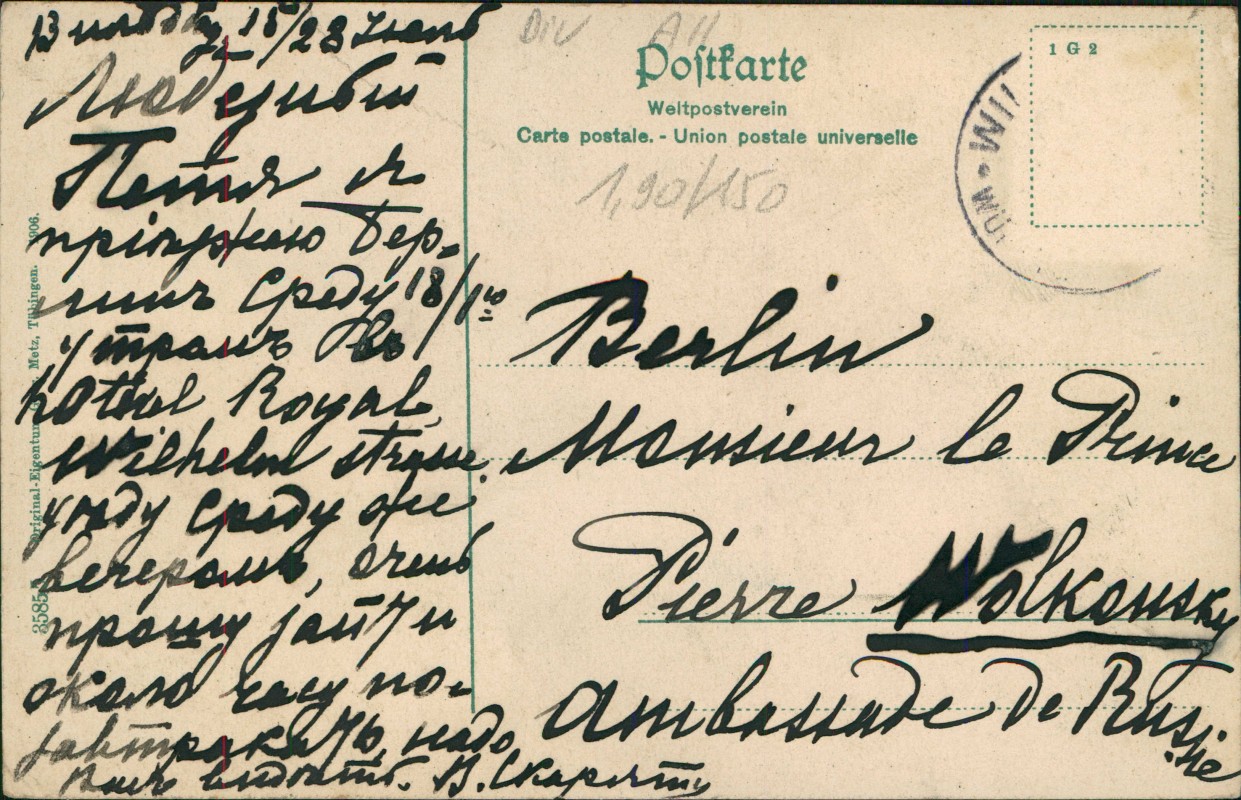 15/28
Любезный
Петя я
пріѣзжаю Бер-
линъ Среду 18/1го
утромъ въ
hôtel Royal
Wilhelm strasse
уѣду Среду же
вечеромъ, очень
прошу зайти
около часу по-
завтракать, надо
Васъ видѣть. В. Скарятин
3585
Original-Eigentum Metz, Tübingen. 1906.
Div All
Postkarte
Weltpostverein
Carte postale. - Union postale universelle
1,90/150
1 G 2
Berlin
Monsieur le Prince
Pierre Wolkonsky
Ambassade de Russie